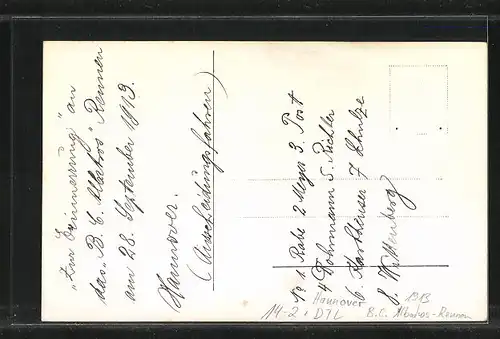 „Zur Erinnerung" an
das „B. C. Albatros" Rennen
am 28. September 1913.
Hannover.
(Ausscheidungsfahren)
1 Rabe 2 Meyer 3. Post
4 Dohrmann 5. Richter
6. Karthäuser 7 Schulze
8. Wittenberg
Hannover 1913
14-2, D7L B.C. Albatros-Rennen